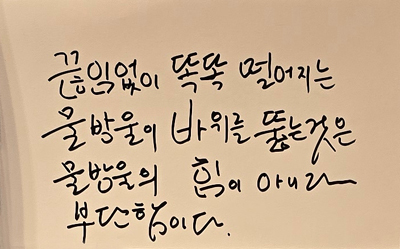 끊임없이 똑똑 떨어지는
물방울이 바위를 뚫는것은
물방울의 힘이 아니라
부단함이다.